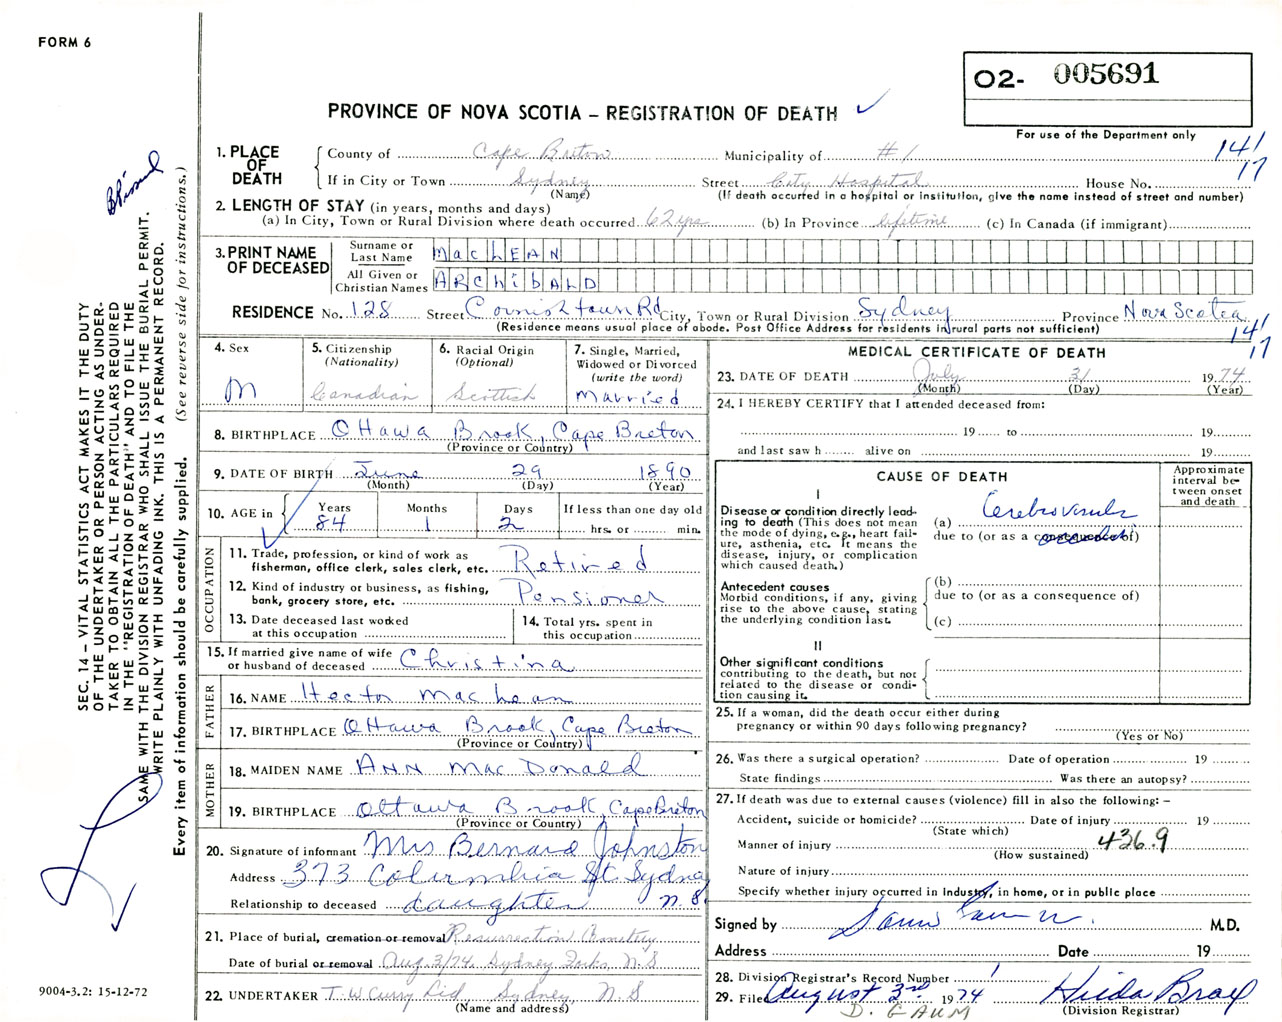 FORM 6
O2- 005691
PROVINCE OF NOVA SCOTIA – REGISTRATION OF DEATH
For use of the Department only
141
17
1. PLACE OF DEATH
County of Cape Breton Municipality of #1
If in City or Town Sydney Street City Hospital House No.
(Name) (If death occurred in a hospital or institution, give the name instead of street and number)
2. LENGTH OF STAY (in years, months and days)
(a) In City, Town or Rural Division where death occurred 62 yrs (b) In Province lifetime (c) In Canada (if immigrant)
3. PRINT NAME OF DECEASED
Surname or Last Name MacLEAN
All Given or Christian Names ARChibALD
RESIDENCE No. 128 Street Cornishtown Rd City, Town or Rural Division Sydney Province Nova Scotea
(Residence means usual place of abode. Post Office Address for residents in rural parts not sufficient)
141
17
4. Sex
M
5. Citizenship (Nationality)
Canadian
6. Racial Origin (Optional)
Scottish
7. Single, Married, Widowed or Divorced (write the word)
Married
8. BIRTHPLACE Ottawa Brook, Cape Breton
(Province or Country)
9. DATE OF BIRTH June 29 1890
(Month) (Day) (Year)
10. AGE in
Years Months Days If less than one day old
84 1 2 hrs. or min.
OCCUPATION
11. Trade, profession, or kind of work as fisherman, office clerk, sales clerk, etc. Retired
12. Kind of industry or business, as fishing, bank, grocery store, etc. Pensioner
13. Date deceased last worked at this occupation
14. Total yrs. spent in this occupation
15. If married give name of wife or husband of deceased Christina
FATHER
16. NAME Hector MacLean
17. BIRTHPLACE Ottawa Brook, Cape Breton
(Province or Country)
MOTHER
18. MAIDEN NAME ANN Mac Donald
19. BIRTHPLACE Ottawa Brook, Cape Breton
(Province or Country)
20. Signature of informant Mrs Bernard Johnston
Address 373 Columbia St. Sydney
Relationship to deceased daughter N.S.
21. Place of burial, cremation or removal Resurrection Cemetery
Date of burial or removal Aug. 3/74. Sydney Forks, N.S
22. UNDERTAKER T W Curry Ltd, Sydney, N.S
(Name and address)
MEDICAL CERTIFICATE OF DEATH
23. DATE OF DEATH July 31 1974
(Month) (Day) (Year)
24. I HEREBY CERTIFY that I attended deceased from:
19 to 19
and last saw h alive on 19
CAUSE OF DEATH
Approximate interval between onset and death
I
Disease or condition directly leading to death (This does not mean the mode of dying, e.g., heart failure, asthenia, etc. It means the disease, injury, or complication which caused death.)
(a) Cerebrovascular
due to (or as a consequence of) accident
Antecedent causes
Morbid conditions, if any, giving rise to the above cause, stating the underlying condition last.
(b)
due to (or as a consequence of)
(c)
II
Other significant conditions contributing to the death, but not related to the disease or condition causing it.
25. If a woman, did the death occur either during pregnancy or within 90 days following pregnancy?
(Yes or No)
26. Was there a surgical operation? Date of operation 19
State findings Was there an autopsy?
27. If death was due to external causes (violence) fill in also the following: –
Accident, suicide or homicide? Date of injury 19
(State which)
Manner of injury 436.9
(How sustained)
Nature of injury
Specify whether injury occurred in Industry, in home, or in public place
Signed by M.D.
Address Date 19
28. Division Registrar's Record Number 1
29. Filed August 3rd 1974 Hilda Bray
D. GAUM (Division Registrar)
SEC. 14 – VITAL STATISTICS ACT MAKES IT THE DUTY
OF THE UNDERTAKER OR PERSON ACTING AS UNDER-
TAKER TO OBTAIN ALL THE PARTICULARS REQUIRED
IN THE "REGISTRATION OF DEATH" AND TO FILE THE
SAME WITH THE DIVISION REGISTRAR WHO SHALL ISSUE THE BURIAL PERMIT.
WRITE PLAINLY WITH UNFADING INK. THIS IS A PERMANENT RECORD.
Every item of information should be carefully supplied. (See reverse side for instructions.)
9004-3.2: 15-12-72